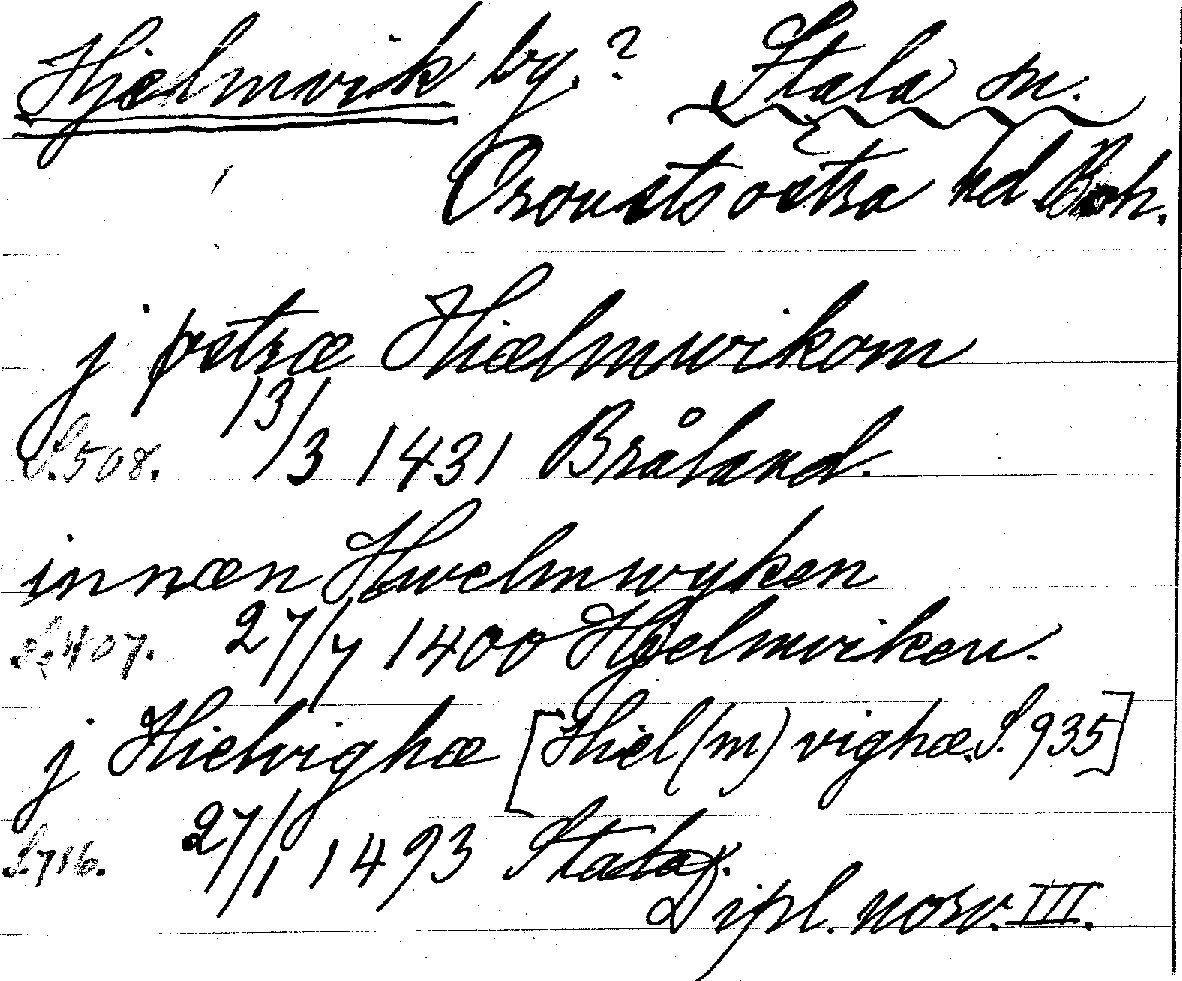 Hjelmvik by? Stala sn.
Orousts östra hd Boh.
j østræ Hiælmwikom
S. 508. 13/3 1431 Bråland.
innæn Hwelmwyken
S. 407. 27/7 1400 Hjelmviken.
j Hielvighæ [Hiel(m)vighæ. S. 935]
S. 716. 27/1 1493 Stala.
Dipl. norv. III.